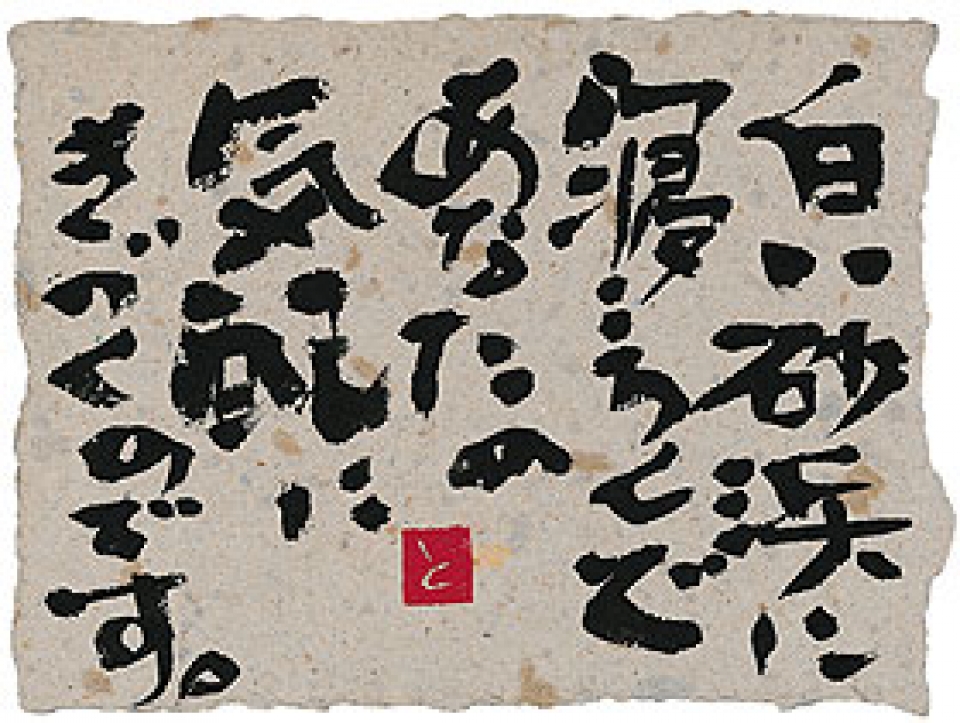 白い砂浜に
寝ころんで
あなたの
気配に
きづくのです。
と